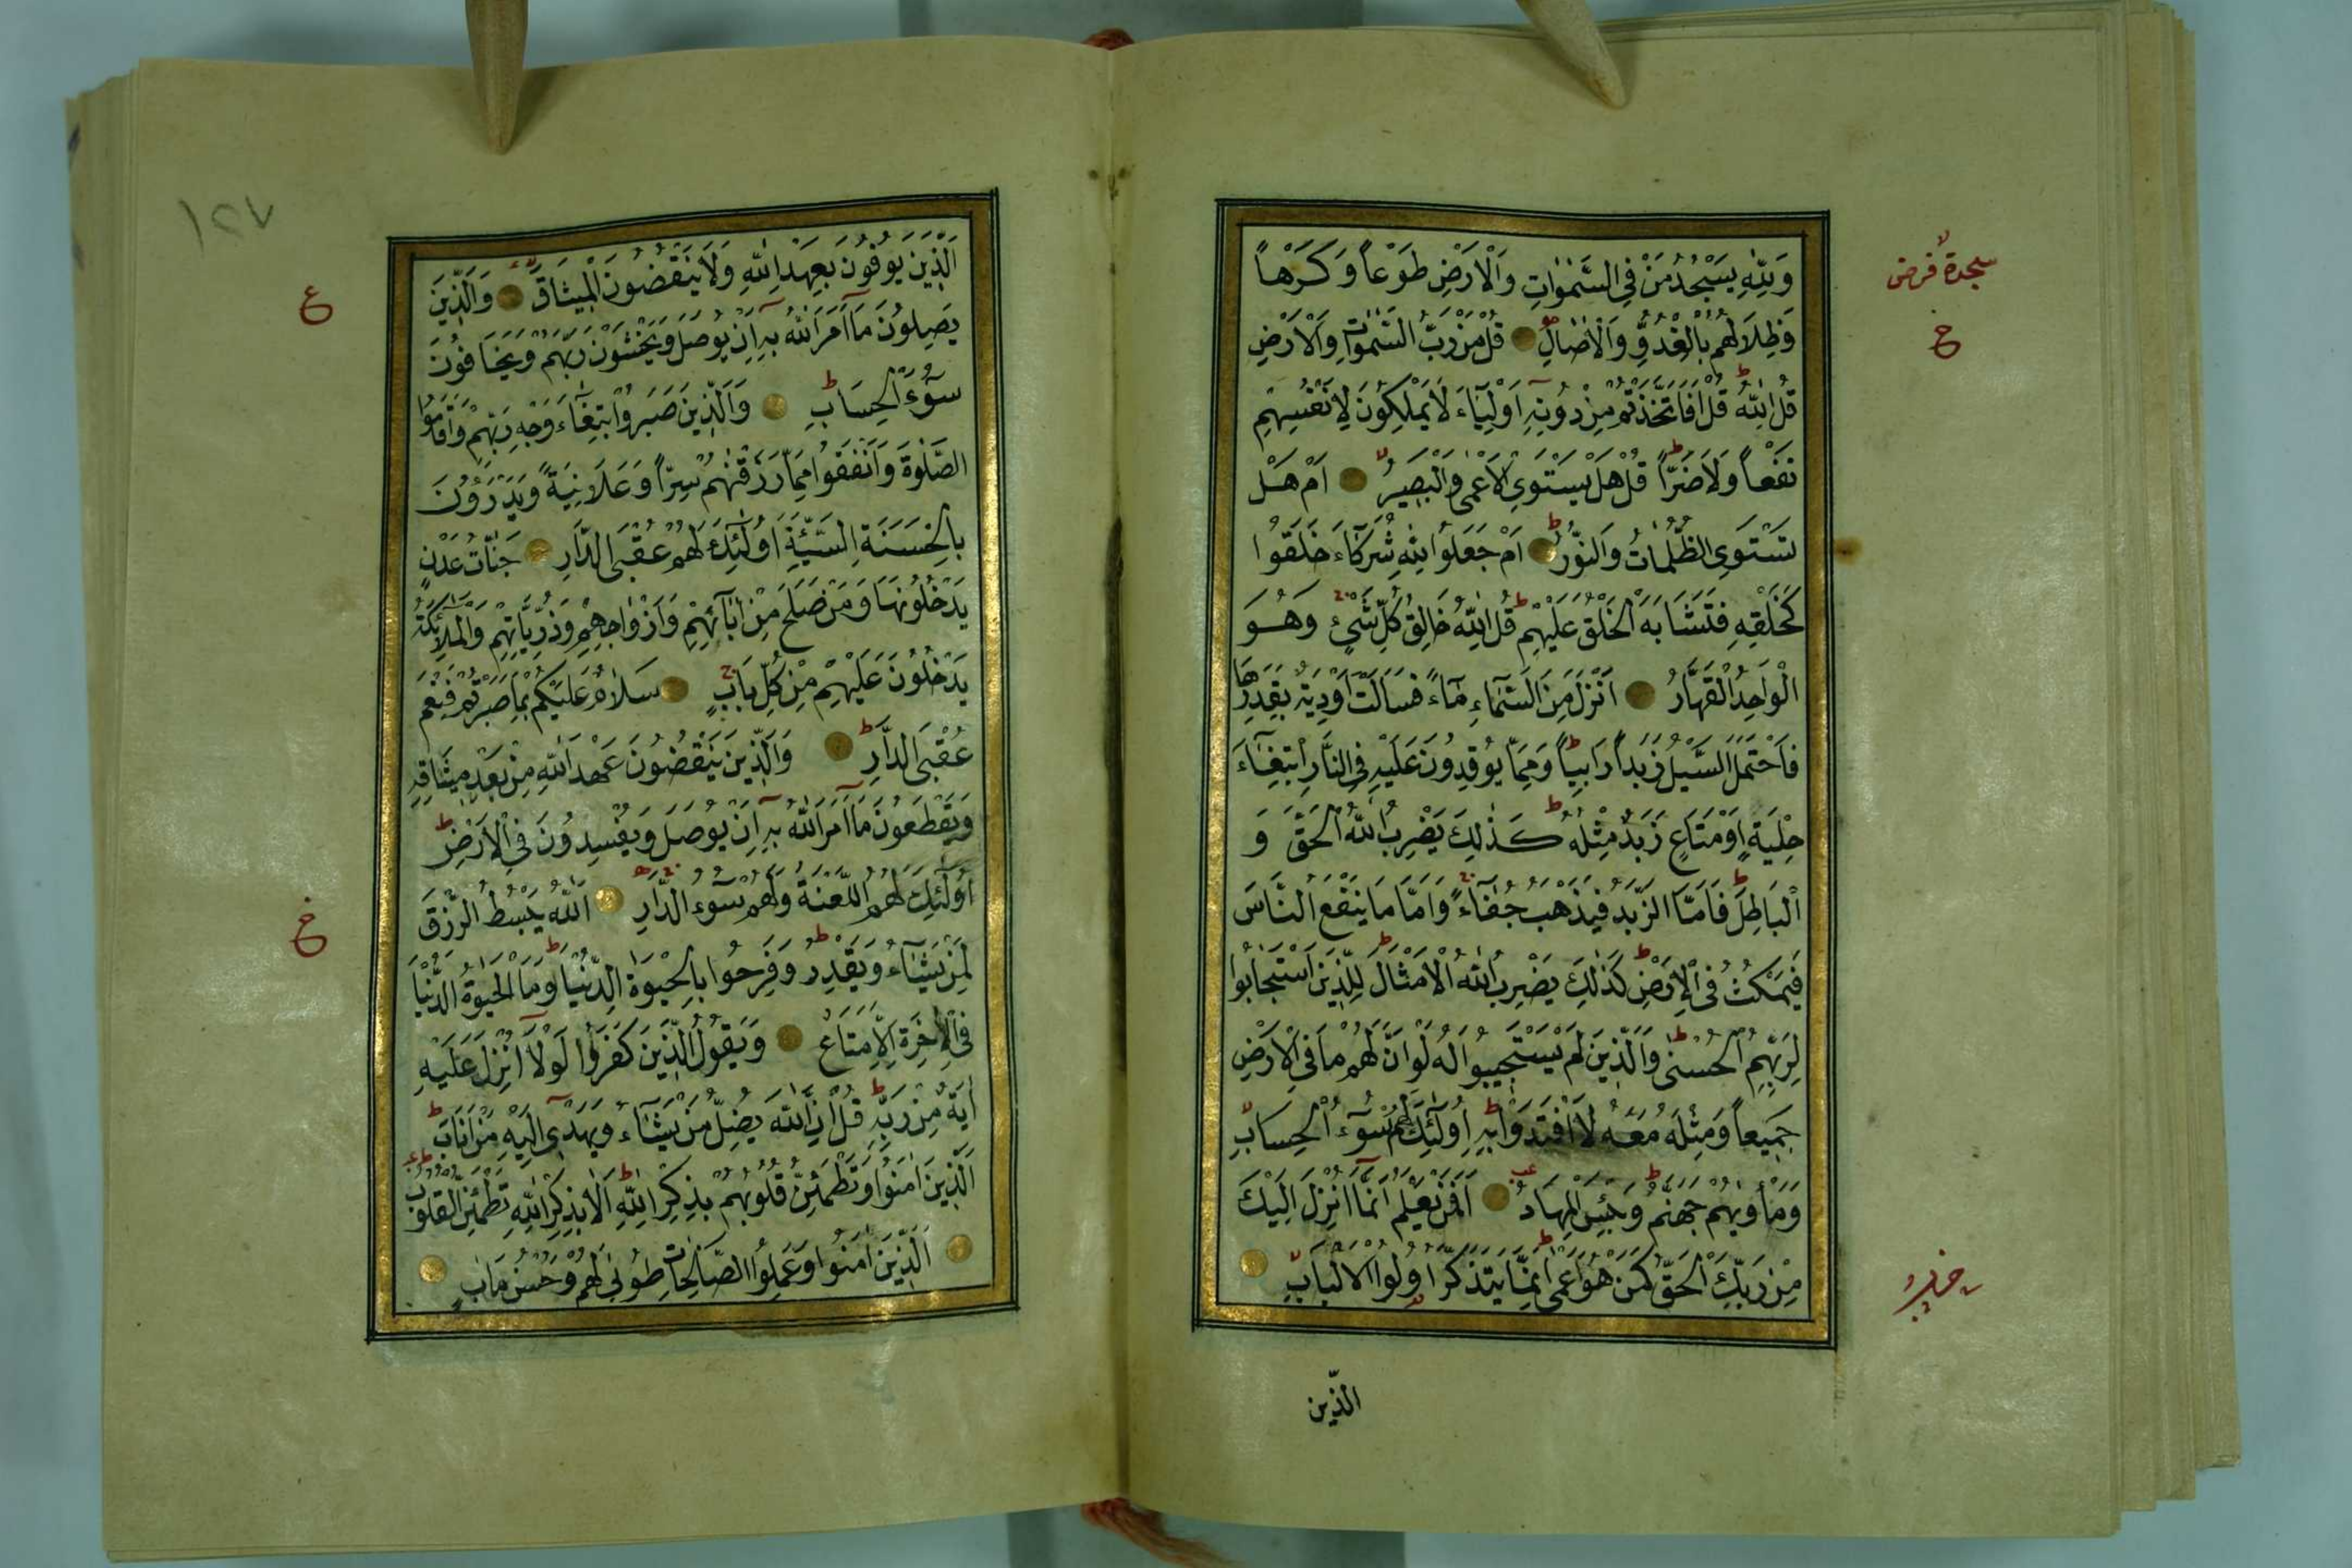 سجدۀ فرض
وَلِلّٰهِ يَسْجُدُ مَنْ فِي السَّمٰوَاتِ وَالْاَرْضِ طَوْعاً وَكَرْهاً
وَظِلَالُهُمْ بِالْغُدُوِّ وَالْاٰصَالِ قُلْ مَنْ رَبُّ السَّمٰوَاتِ وَالْاَرْضِ
قُلِ اللّٰهُ قُلْ اَفَاتَّخَذْتُمْ مِنْ دُونِهِ اَوْلِيَاءَ لَا يَمْلِكُونَ لِاَنْفُسِهِمْ
نَفْعاً وَلَا ضَرّاً قُلْ هَلْ يَسْتَوِي الْاَعْمٰى وَالْبَصِيرُ اَمْ هَلْ
تَسْتَوِي الظُّلُمَاتُ وَالنُّورُ اَمْ جَعَلُوا لِلّٰهِ شُرَكَاءَ خَلَقُوا
كَخَلْقِهِ فَتَشَابَهَ الْخَلْقُ عَلَيْهِمْ قُلِ اللّٰهُ خَالِقُ كُلِّ شَيْءٍ وَهُوَ
الْوَاحِدُ الْقَهَّارُ اَنْزَلَ مِنَ السَّمَاءِ مَاءً فَسَالَتْ اَوْدِيَةٌ بِقَدَرِهَا
فَاحْتَمَلَ السَّيْلُ زَبَداً رَابِياً وَمِمَّا يُوقِدُونَ عَلَيْهِ فِي النَّارِ ابْتِغَاءَ
حِلْيَةٍ اَوْ مَتَاعٍ زَبَدٌ مِثْلُهُ كَذٰلِكَ يَضْرِبُ اللّٰهُ الْحَقَّ وَ
الْبَاطِلَ فَاَمَّا الزَّبَدُ فَيَذْهَبُ جُفَاءً وَاَمَّا مَا يَنْفَعُ النَّاسَ
فَيَمْكُثُ فِي الْاَرْضِ كَذٰلِكَ يَضْرِبُ اللّٰهُ الْاَمْثَالَ لِلَّذِينَ اسْتَجَابُوا
لِرَبِّهِمُ الْحُسْنٰى وَالَّذِينَ لَمْ يَسْتَجِيبُوا لَهُ لَوْ اَنَّ لَهُمْ مَا فِي الْاَرْضِ
جَمِيعاً وَمِثْلَهُ مَعَهُ لَافْتَدَوْا بِهِ اُولٰئِكَ لَهُمْ سُوءُ الْحِسَابِ
وَمَأْوٰيهُمْ جَهَنَّمُ وَبِئْسَ الْمِهَادُ اَفَمَنْ يَعْلَمُ اَنَّمَا اُنْزِلَ اِلَيْكَ
مِنْ رَبِّكَ الْحَقُّ كَمَنْ هُوَ اَعْمٰى اِنَّمَا يَتَذَكَّرُ اُولُوا الْاَلْبَابِ
الَّذِينَ
١٢٧
اَلَّذِينَ يُوفُونَ بِعَهْدِ اللّٰهِ وَلَا يَنْقُضُونَ الْمِيثَاقَ وَالَّذِينَ
يَصِلُونَ مَا اَمَرَ اللّٰهُ بِهِ اَنْ يُوصَلَ وَيَخْشَوْنَ رَبَّهُمْ وَيَخَافُونَ
سُوءَ الْحِسَابِ وَالَّذِينَ صَبَرُوا ابْتِغَاءَ وَجْهِ رَبِّهِمْ وَاَقَامُوا
الصَّلٰوةَ وَاَنْفَقُوا مِمَّا رَزَقْنٰهُمْ سِرّاً وَعَلَانِيَةً وَيَدْرَؤُنَ
بِالْحَسَنَةِ السَّيِّئَةَ اُولٰئِكَ لَهُمْ عُقْبَى الدَّارِ جَنَّاتُ عَدْنٍ
يَدْخُلُونَهَا وَمَنْ صَلَحَ مِنْ اٰبَائِهِمْ وَاَزْوَاجِهِمْ وَذُرِّيَّاتِهِمْ وَالْمَلٰئِكَةُ
يَدْخُلُونَ عَلَيْهِمْ مِنْ كُلِّ بَابٍ سَلَامٌ عَلَيْكُمْ بِمَا صَبَرْتُمْ فَنِعْمَ
عُقْبَى الدَّارِ وَالَّذِينَ يَنْقُضُونَ عَهْدَ اللّٰهِ مِنْ بَعْدِ مِيثَاقِهِ
وَيَقْطَعُونَ مَا اَمَرَ اللّٰهُ بِهِ اَنْ يُوصَلَ وَيُفْسِدُونَ فِي الْاَرْضِ
اُولٰئِكَ لَهُمُ اللَّعْنَةُ وَلَهُمْ سُوءُ الدَّارِ اَللّٰهُ يَبْسُطُ الرِّزْقَ
لِمَنْ يَشَاءُ وَيَقْدِرُ وَفَرِحُوا بِالْحَيٰوةِ الدُّنْيَا وَمَا الْحَيٰوةُ الدُّنْيَا
فِي الْاٰخِرَةِ اِلَّا مَتَاعٌ وَيَقُولُ الَّذِينَ كَفَرُوا لَوْلَا اُنْزِلَ عَلَيْهِ
اٰيَةٌ مِنْ رَبِّهِ قُلْ اِنَّ اللّٰهَ يُضِلُّ مَنْ يَشَاءُ وَيَهْدِي اِلَيْهِ مَنْ اَنَابَ
اَلَّذِينَ اٰمَنُوا وَتَطْمَئِنُّ قُلُوبُهُمْ بِذِكْرِ اللّٰهِ اَلَا بِذِكْرِ اللّٰهِ تَطْمَئِنُّ الْقُلُوبُ
اَلَّذِينَ اٰمَنُوا وَعَمِلُوا الصَّالِحَاتِ طُوبٰى لَهُمْ وَحُسْنُ مَاٰبٍ